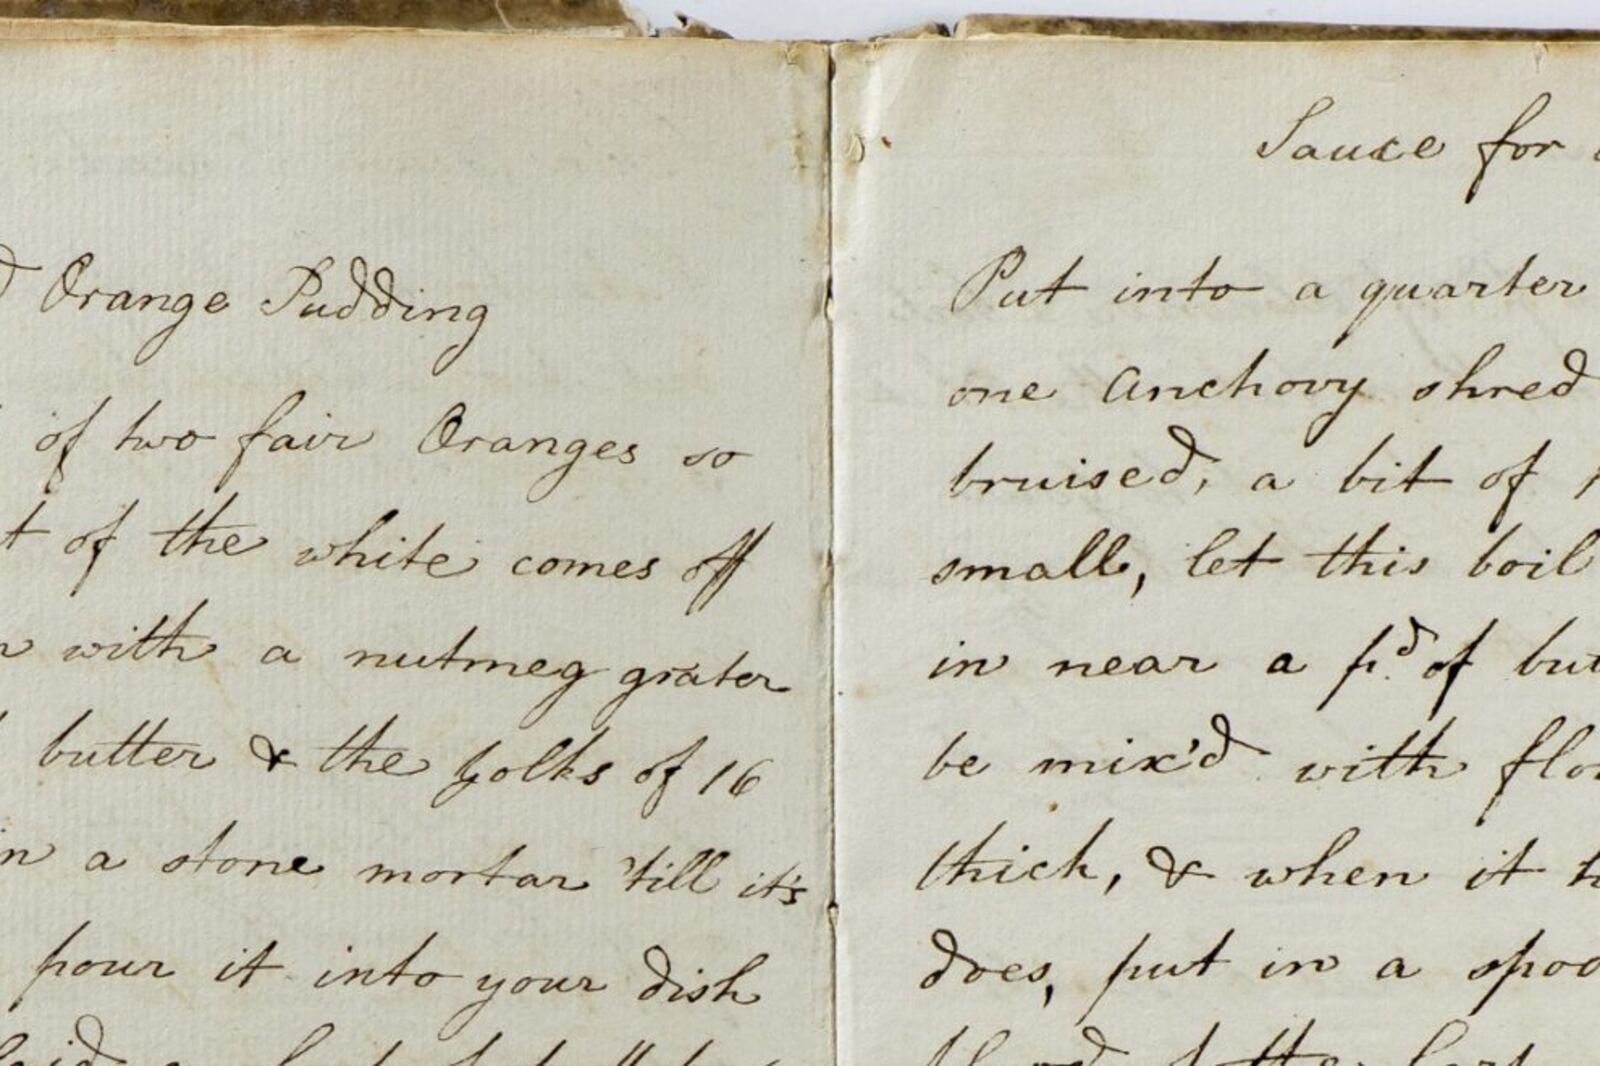 Orange Pudding
of two fair Oranges so
of the white comes off
with a nutmeg grater
butter & the yolks of 16
in a stone mortar 'till it's
pour it into your dish
Sauce for
Put into a quarter
one Anchovy shred
bruised, a bit of
small, let this boil
in near a pd. of
be mix'd with
thick, & when it
does, put in a